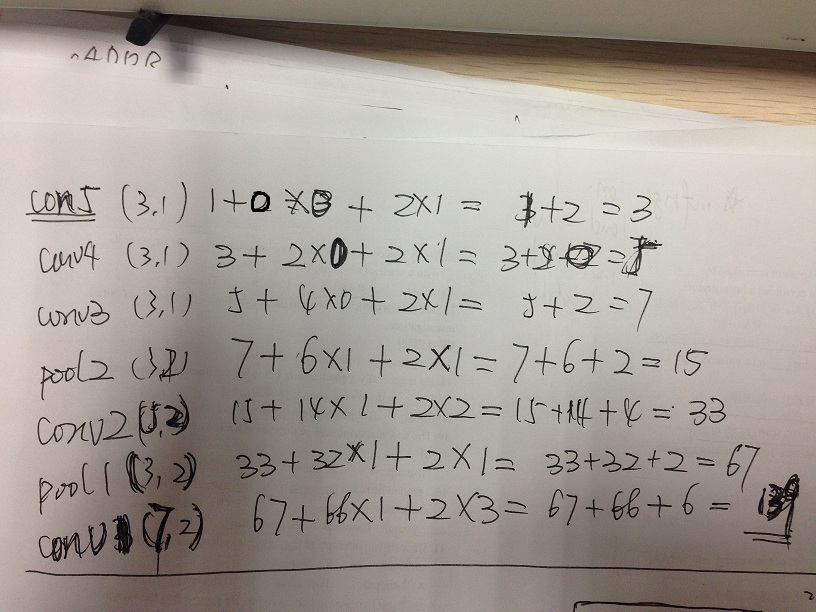 ADDR
con5 (3,1) 1+0 ×3 + 2×1 = 1+2 = 3
conv4 (3,1) 3+ 2×0+ 2×1= 3+2 =5
conv3 (3,1) 5+ 4×0+2×1= 5+2=7
pool2 (3,2) 7+6×1+2×1=7+6+2=15
conv2(5,2) 15+14×1+2×2=15+14+4= 33
pool1 (3,2) 33+32×1+2×1= 33+32+2=67
conv1 (7,2) 67+66×1+2×3= 67+66+6 = 139